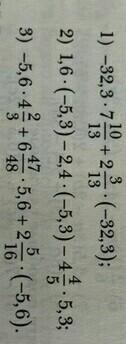 1) −32,3 · 7 10/13 + 2 3/13 · (−32,3);
2) 1,6 · (−5,3) − 2,4 · (−5,3) − 4 4/5 · 5,3;
3) −5,6 · 4 2/3 + 6 47/48 · 5,6 + 2 5/16 · (−5,6).